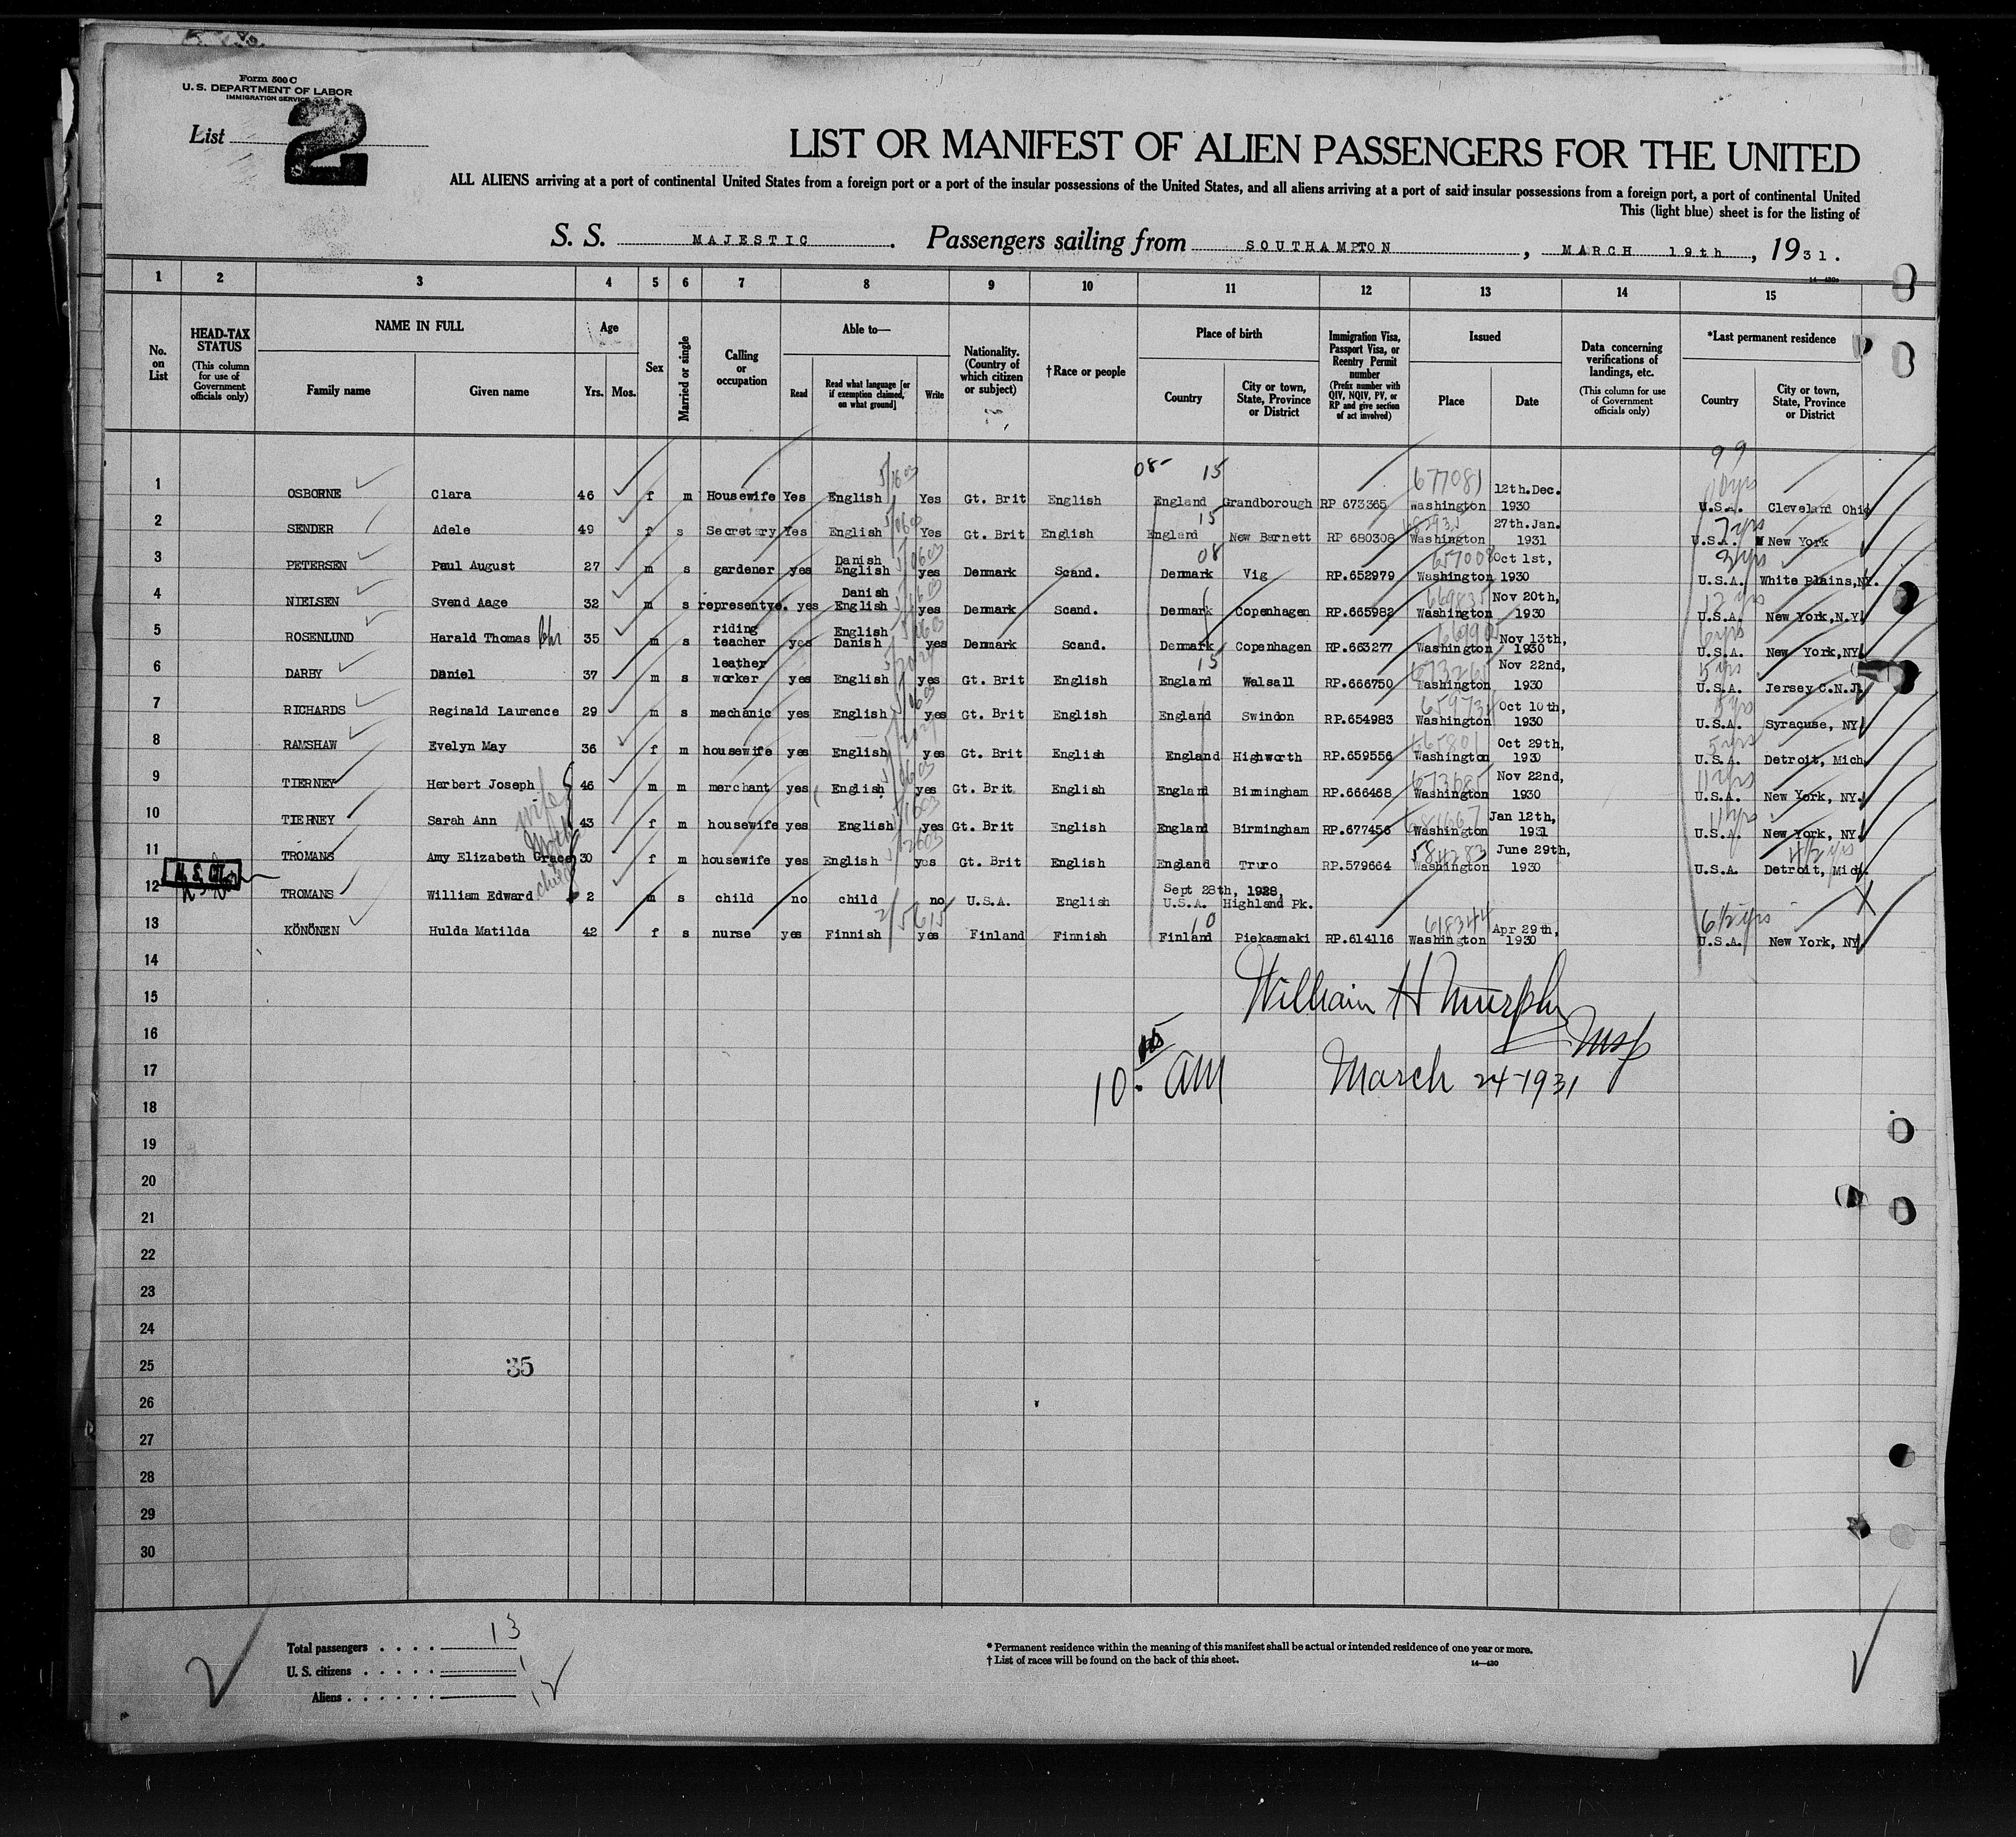 Form 500 C
U. S. DEPARTMENT OF LABOR
IMMIGRATION SERVICE
List 2
LIST OR MANIFEST OF ALIEN PASSENGERS FOR THE UNITED
ALL ALIENS arriving at a port of continental United States from a foreign port or a port of the insular possessions of the United States, and all aliens arriving at a port of said insular possessions from a foreign port, a port of continental United
This (light blue) sheet is for the listing of
S. S. MAJESTIC . Passengers sailing from SOUTHAMPTON , MARCH 19th , 1931.
14-430
1 2 3 4 5 6 7 8 9 10 11 12 13 14 15
No. on List
HEAD-TAX STATUS (This column for use of Government officials only)
NAME IN FULL
Family name Given name
Age
Yrs. Mos.
Sex
Married or single
Calling or occupation
Able to—
Read Read what language [or if exemption claimed, on what ground] Write
Nationality. (Country of which citizen or subject)
†Race or people
Place of birth
Country City or town, State, Province or District
Immigration Visa, Passport Visa, or Reentry Permit number (Prefix number with QIV, NQIV, PV, or RP and give section of act involved)
Issued
Place Date
Data concerning verifications of landings, etc. (This column for use of Government officials only)
*Last permanent residence
Country City or town, State, Province or District
08 15 677081 99
1 OSBORNE Clara 46 f m Housewife Yes English Yes Gt. Brit English England Grandborough RP 673365 Washington 12th.Dec. 1930 10yrs U.S.A. Cleveland Ohio
2 SENDER Adele 49 f s Secretary Yes English Yes Gt. Brit English 15 England New Barnett RP 680308 Washington 27th.Jan. 1931 7yrs U.S.A. New York
3 PETERSEN Paul August 27 m s gardener yes Danish English yes Denmark Scand. 08 Denmark Vig RP.652979 Washington Oct 1st, 1930 3yrs U.S.A. White Plains,NY.
4 NIELSEN Svend Aage 32 m s representve. yes Danish English yes Denmark Scand. Denmark Copenhagen RP.665982 669835 Washington Nov 20th, 1930 U.S.A. New York,N.Y.
5 ROSENLUND Harald Thomas 35 m s riding teacher yes English Danish yes Denmark Scand. Denmark Copenhagen RP.663277 Washington Nov 13th, 1930 6yrs U.S.A. New York,NY
6 DARBY Daniel 37 m s leather worker yes English yes Gt. Brit English 15 England Walsall RP.666750 Washington Nov 22nd, 1930 5yrs U.S.A. Jersey C.N.J.
7 RICHARDS Reginald Laurence 29 m s mechanic yes English yes Gt. Brit English England Swindon RP.654983 Washington Oct 10th, 1930 U.S.A. Syracuse, NY
8 RAMSHAW Evelyn May 36 f m housewife yes English yes Gt. Brit English England Highworth RP.659556 Washington Oct 29th, 1930 5yrs U.S.A. Detroit, Mich
9 TIERNEY Herbert Joseph 46 m m merchant yes English yes Gt. Brit English England Birmingham RP.666468 Washington Nov 22nd, 1930 11yrs U.S.A. New York, NY.
10 TIERNEY Sarah Ann wife 43 f m housewife yes English yes Gt. Brit English England Birmingham RP.677456 Washington Jan 12th, 1931 11yrs U.S.A. New York, NY
11 TROMANS Amy Elizabeth Grace 30 f m housewife yes English yes Gt. Brit English England Truro RP.579664 584283 Washington June 29th, 1930 U.S.A. Detroit, Mich.
12 TROMANS William Edward child 2 m s child no child no U.S.A. English Sept 28th, 1928, U.S.A. Highland Pk.
13 KÖNÖNEN Hulda Matilda 42 f s nurse yes Finnish yes Finland Finnish 10 Finland Piekasmaki RP.614116 618344 Washington Apr 29th, 1930 6½yrs U.S.A. New York, NY
14
15
William H Murphy
16
Insp
17
10.15 AM March 24-1931
18
19
20
21
22
23
24
25 35
26
27
28
29
30
Total passengers . . . . 13
U. S. citizens . . . . . 1
Aliens . . . . . . 12
* Permanent residence within the meaning of this manifest shall be actual or intended residence of one year or more.
† List of races will be found on the back of this sheet.
14—430